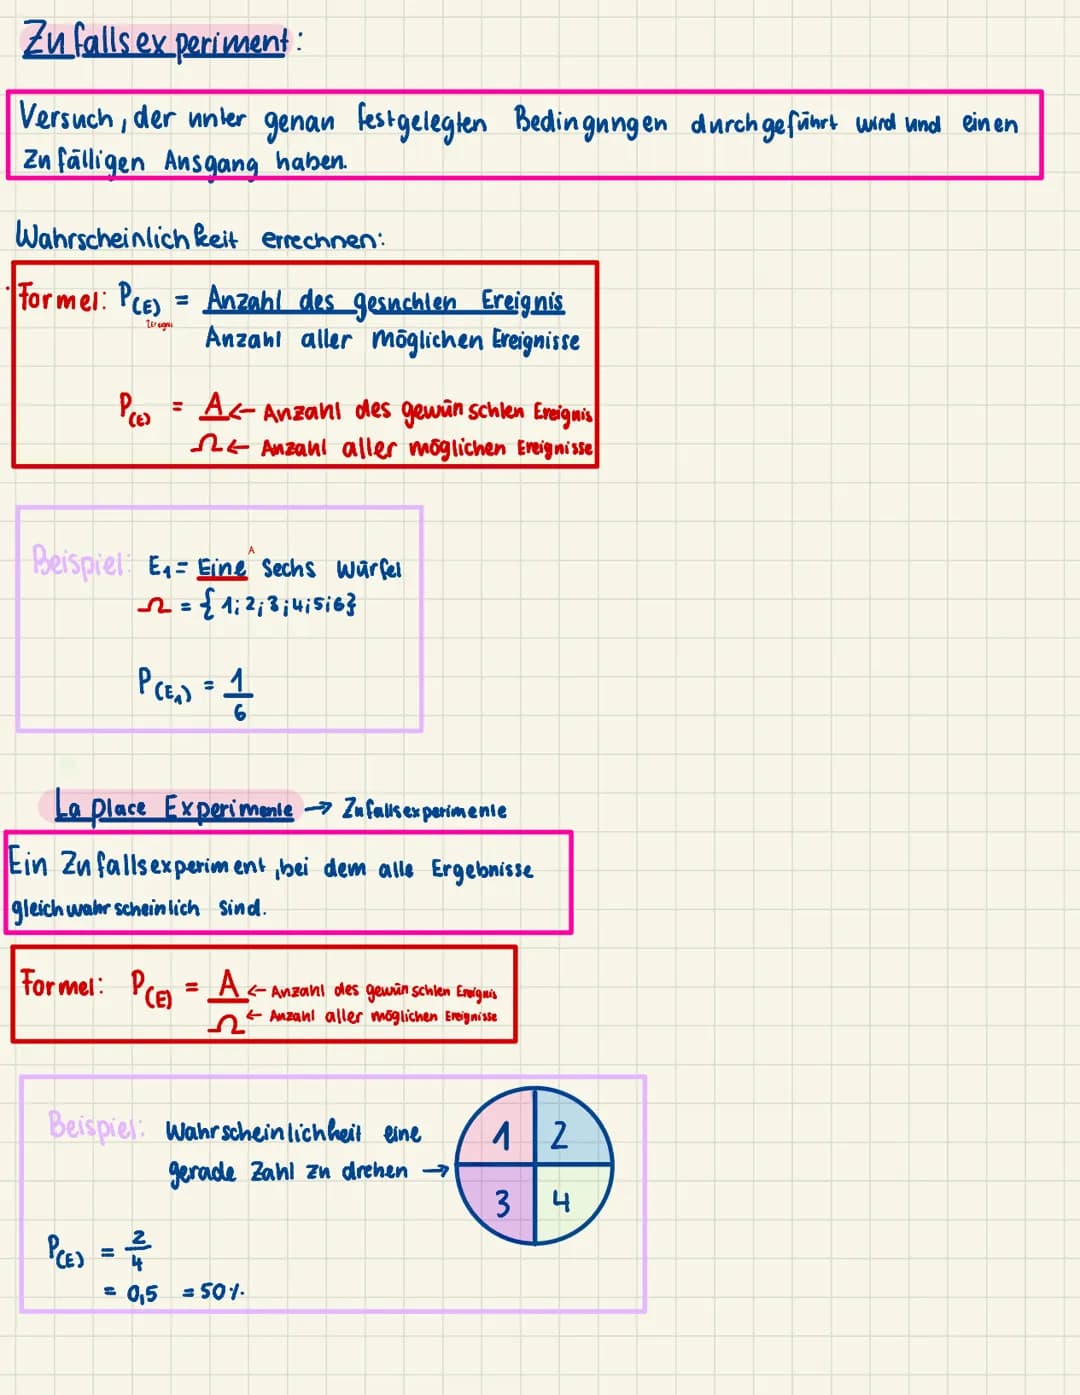 Zufallsexperiment:
Versuch, der unter genau festgelegten Bedingungen durchgeführt wird und einen
Zufälligen Ausgang haben.
Wahrscheinlichkeit errechnen:
Formel: P(E) = Anzahl des gesuchten Ereignis
Anzahl aller möglichen Ereignisse
P(E) = A ← Anzahl des gewünschten Ereignis
Ω ← Anzahl aller möglichen Ereignisse
A
Beispiel: E₁ = Eine Sechs würfel
Ω = { 1; 2; 3; 4; 5; 6}
P(E₁) = 1
6
La place Experimente → Zufallsexperimente
Ein Zufallsexperiment, bei dem alle Ergebnisse
gleichwahrscheinlich sind.
Formel: P(E) = A ← Anzahl des gewünschten Ereignis
Ω ← Anzahl aller möglichen Ereignisse
Beispiel: Wahrscheinlichkeit eine
gerade Zahl zu drehen →
1 2
3 4
P(E) = 2
4
= 0,5 = 50%